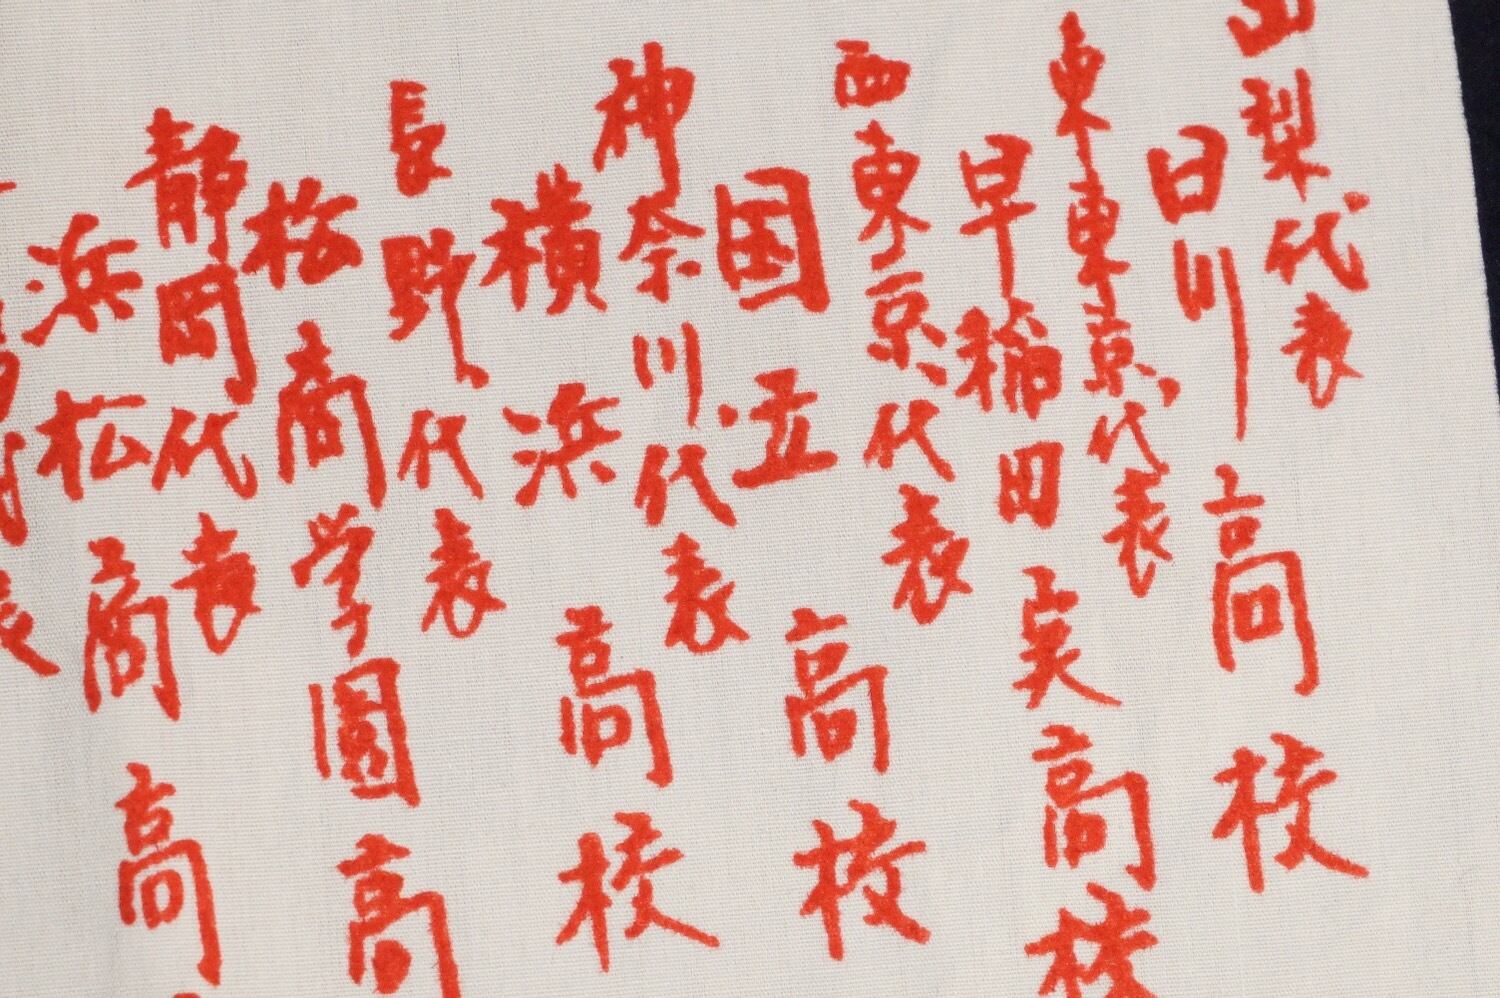 山梨代表
日川高校
東東京代表
早稲田実高校
西東京代表
国立高校
神奈川代表
横浜高校
長野代表
松商学園高
静岡代表
浜松商高